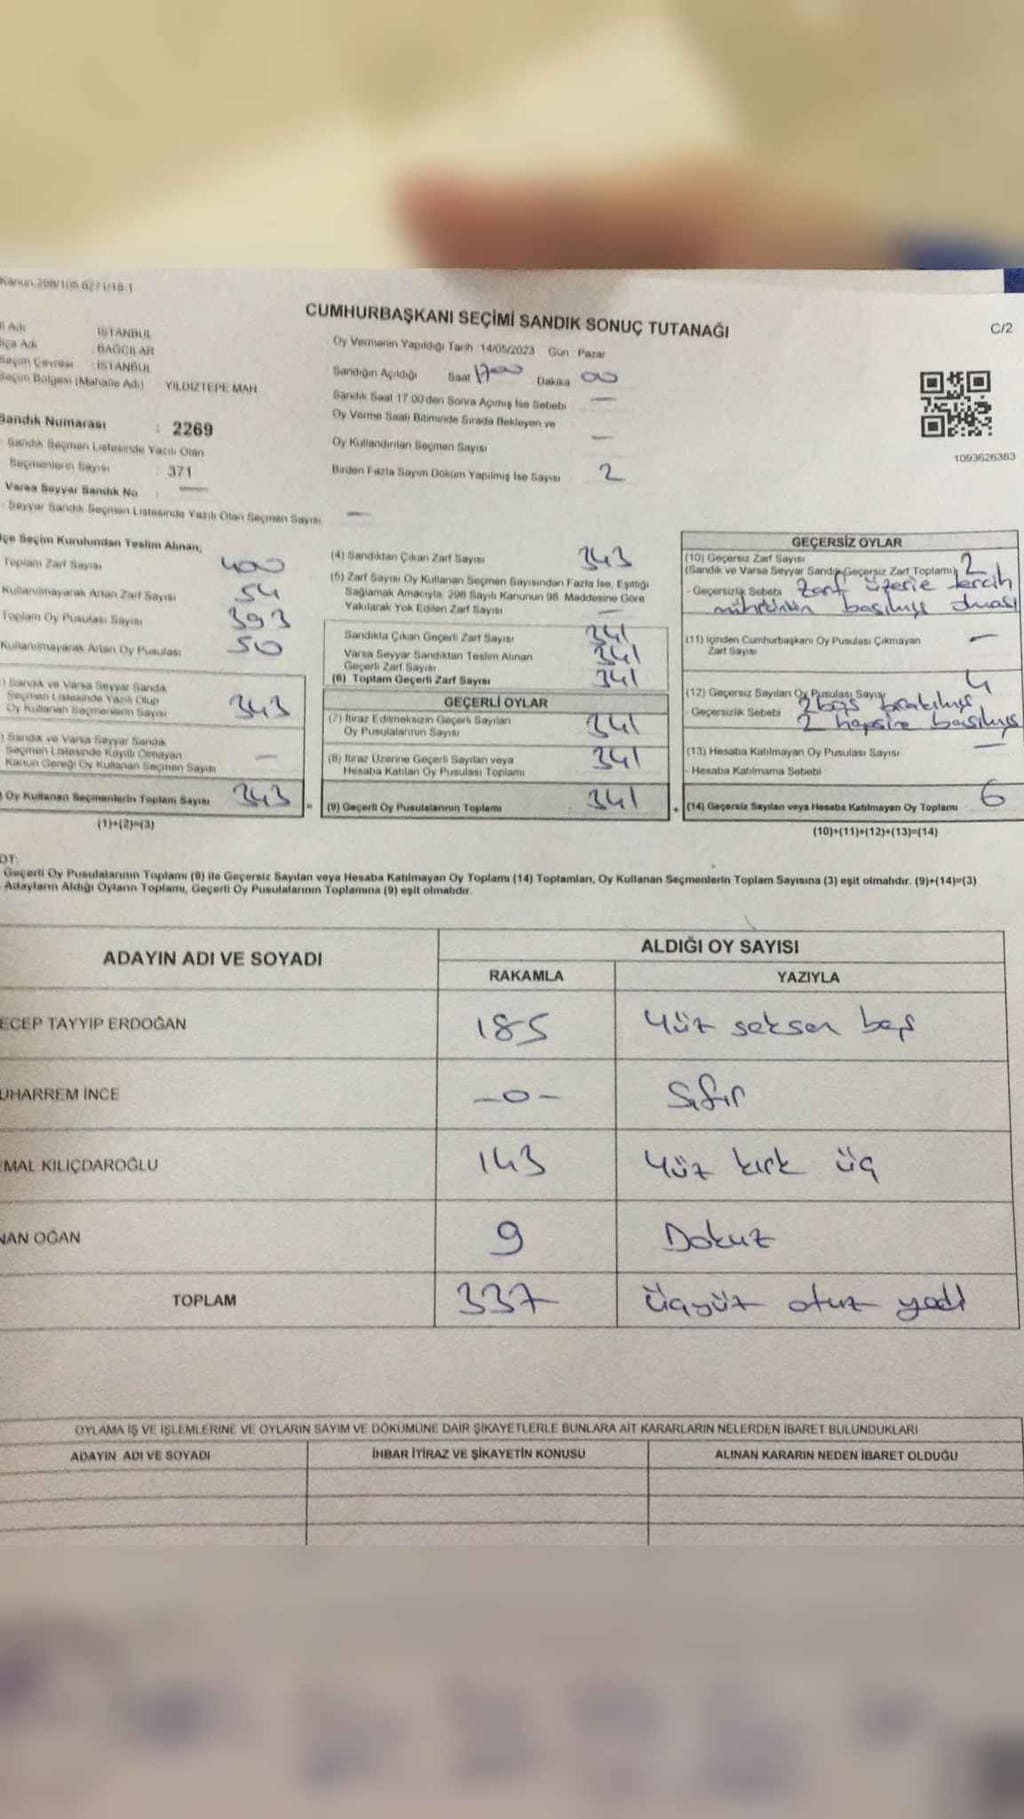 Kanun.298/105.62/1/18-1
CUMHURBAŞKANI SEÇİMİ SANDIK SONUÇ TUTANAĞI
C/2
l Adı : İSTANBUL
lçe Adı : BAĞCILAR
Seçim Çevresi : İSTANBUL
Seçim Bölgesi (Mahalle Adı) YILDIZTEPE MAH
Sandık Numarası : 2269
Sandık Seçmen Listesinde Yazılı Olan
Seçmenlerin Sayısı : 371
Varsa Seyyar Sandık No : —
Seyyar Sandık Seçmen Listesinde Yazılı Olan Seçmen Sayısı —
Oy Vermenin Yapıldığı Tarih :14/05/2023 Gün : Pazar
Sandığın Açıldığı Saat 17 00 Dakika 00
Sandık Saat 17.00'den Sonra Açımış İse Sebebi —
Oy Verme Saati Bitiminde Sırada Bekleyen ve
Oy Kullandırılan Seçmen Sayısı —
Birden Fazla Sayım Döküm Yapılmış İse Sayısı 2
1093626383
lçe Seçim Kurulundan Teslim Alınan;
Toplam Zarf Sayısı 400
Kullanılmayarak Artan Zarf Sayısı 54
Toplam Oy Pusulası Sayısı 393
Kullanılmayarak Artan Oy Pusulası 50
) Sandık ve Varsa Seyyar Sandık
Seçmen Listesinde Yazılı Olup
Oy Kullanan Seçmenlerin Sayısı 343
) Sandık ve Varsa Seyyar Sandık
Seçmen Listesinde Kayıtlı Olmayan
Kanun Gereği Oy Kullanan Seçmen Sayısı —
) Oy Kullanan Seçmenlerin Toplam Sayısı 343 =
(1)+(2)=(3)
(4) Sandıktan Çıkan Zarf Sayısı 343
(5) Zarf Sayısı Oy Kullanan Seçmen Sayısından Fazla İse, Eşitliği
Sağlamak Amacıyla; 298 Sayılı Kanunun 98. Maddesine Göre
Yakılarak Yok Edilen Zarf Sayısı —
Sandıkta Çıkan Geçerli Zarf Sayısı 341
Varsa Seyyar Sandıktan Teslim Alınan
Geçerli Zarf Sayısı 341
(6) Toplam Geçerli Zarf Sayısı 341
GEÇERLİ OYLAR
(7) İtiraz Edilmeksizin Geçerli Sayılan
Oy Pusulalarının Sayısı 341
(8) İtiraz Üzerine Geçerli Sayılan veya
Hesaba Katılan Oy Pusulası Toplamı 341
(9) Geçerli Oy Pusulalarının Toplamı 341 +
GEÇERSİZ OYLAR
(10) Geçersiz Zarf Sayısı
(Sandık ve Varsa Seyyar Sandık Geçersiz Zarf Toplamı) 2
- Geçersizlik Sebebi Zarf üzerie tercih
mührünün basılmış olması
(11) İçinden Cumhurbaşkanı Oy Pusulası Çıkmayan
Zarf Sayısı —
(12) Geçersiz Sayılan Oy Pusulası Sayısı 4
Geçersizlik Sebebi 2 boş bırakılmış
2 hepsine basılmış
(13) Hesaba Katılmayan Oy Pusulası Sayısı —
- Hesaba Katılmama Sebebi
(14) Geçersiz Sayılan veya Hesaba Katılmayan Oy Toplamı 6
(10)+(11)+(12)+(13)=(14)
OT:
Geçerli Oy Pusulalarının Toplamı (9) ile Geçersiz Sayılan veya Hesaba Katılmayan Oy Toplamı (14) Toplamları, Oy Kullanan Seçmenlerin Toplam Sayısına (3) eşit olmalıdır. (9)+(14)=(3)
Adayların Aldığı Oyların Toplamı, Geçerli Oy Pusulalarının Toplamına (9) eşit olmalıdır.
ADAYIN ADI VE SOYADI
ALDIĞI OY SAYISI
RAKAMLA YAZIYLA
ECEP TAYYIP ERDOĞAN 185 Yüz seksen beş
UHARREM İNCE –0– Sıfır
EMAL KILIÇDAROĞLU 143 Yüz kırk üç
NAN OĞAN 9 Dokuz
TOPLAM 337 üçyüz otuz yedi
OYLAMA İŞ VE İŞLEMLERİNE VE OYLARIN SAYIM VE DÖKÜMÜNE DAİR ŞİKAYETLERLE BUNLARA AİT KARARLARIN NELERDEN İBARET BULUNDUKLARI
ADAYIN ADI VE SOYADI İHBAR İTİRAZ VE ŞİKAYETİN KONUSU ALINAN KARARIN NEDEN İBARET OLDUĞU